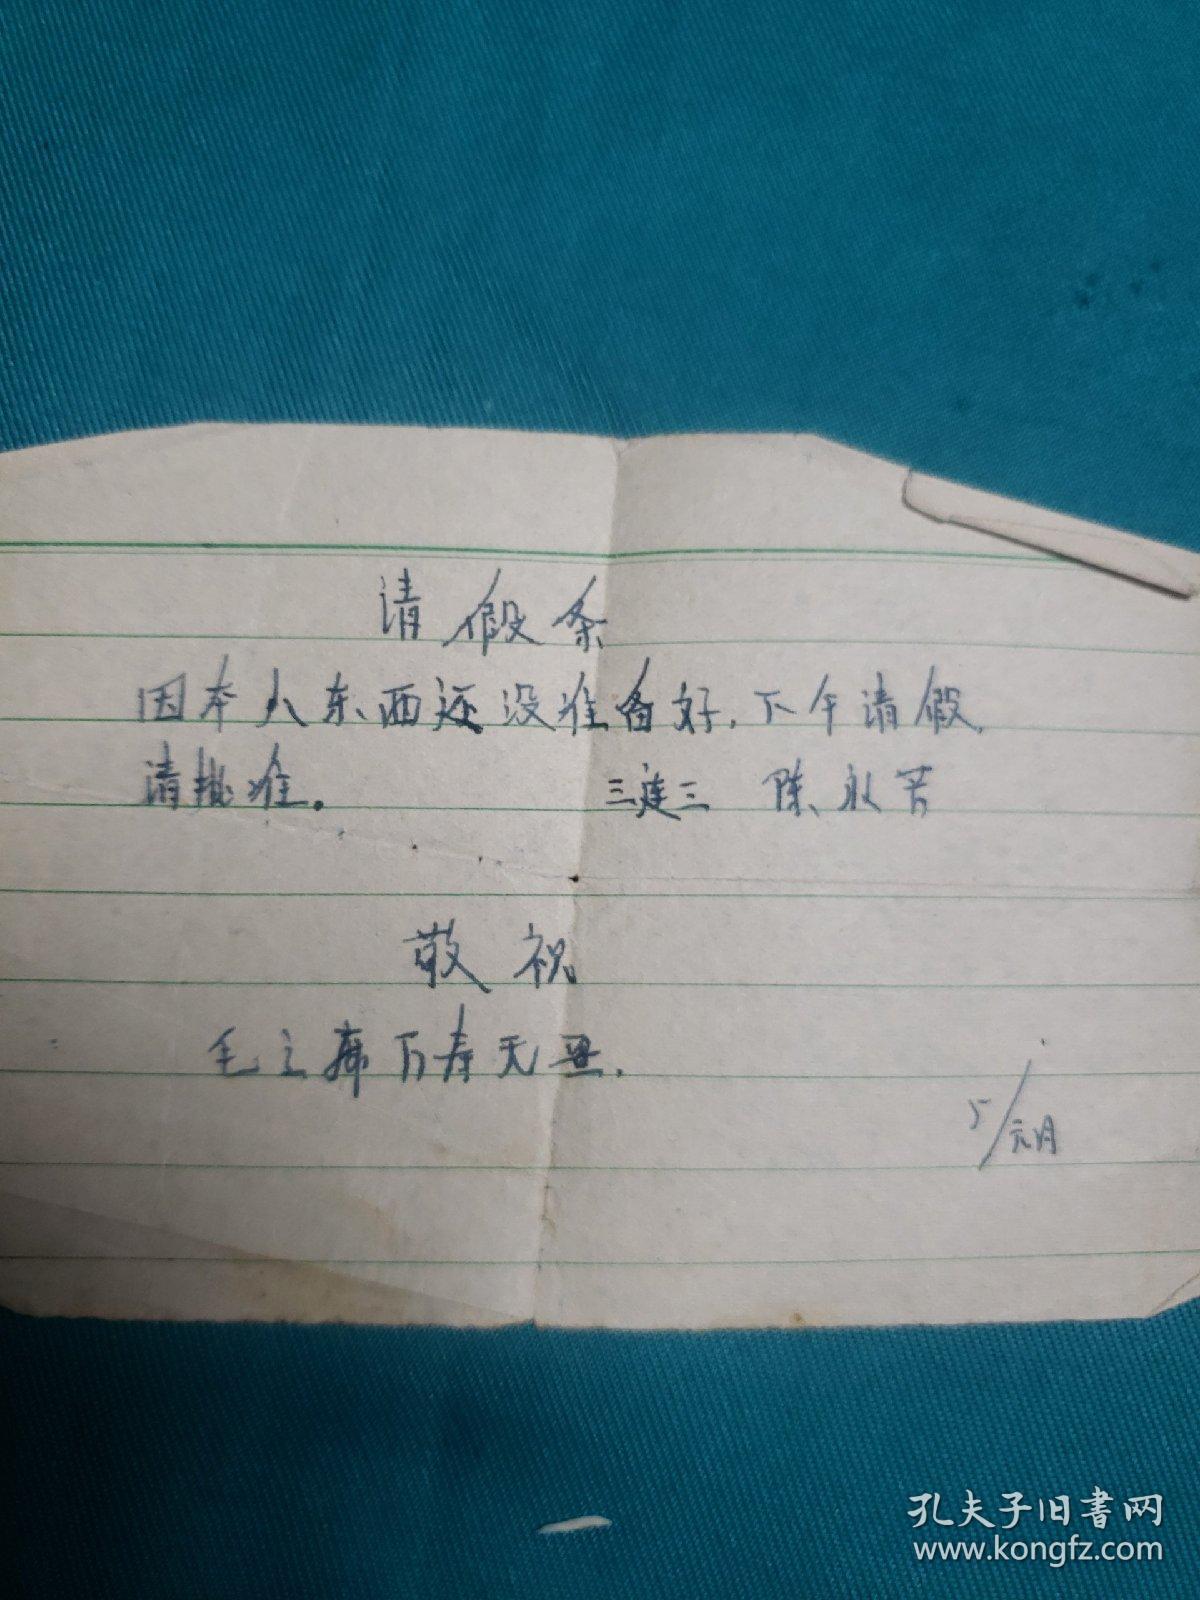 请假条
因本人东西还没准备好,下午请假,
请批准。 三连三 陈永苦
敬祝
毛主席万寿无疆.
5/元月
孔夫子旧书网
www.kongfz.com